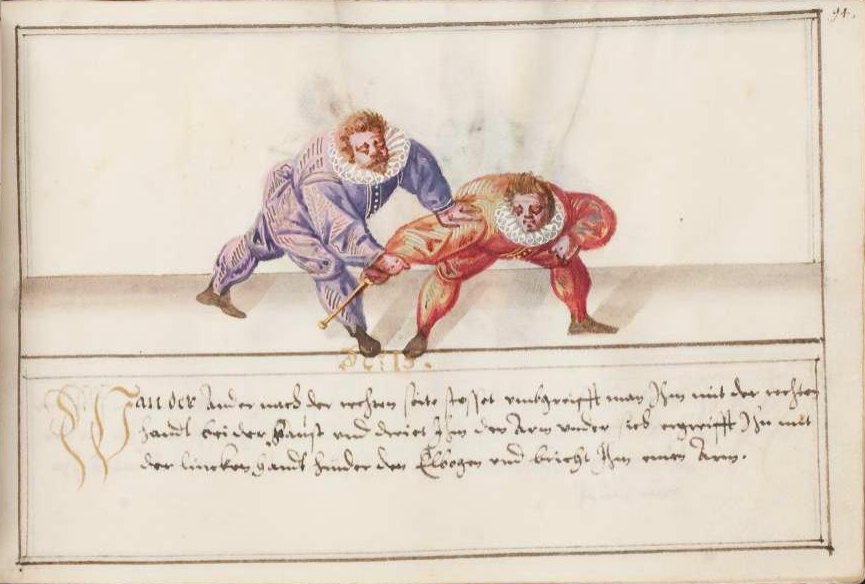 94.
N: 13.
Wan der Ander nach der rechten seite stosset vmbgreifft man Jhm mit der rechten
handt bei der Faust vnd driet Jhm den Arm vnder sich ergreifft Jhn mit
der lincken handt hinder den Elbogen vnd bricht Jhm einen Arm.